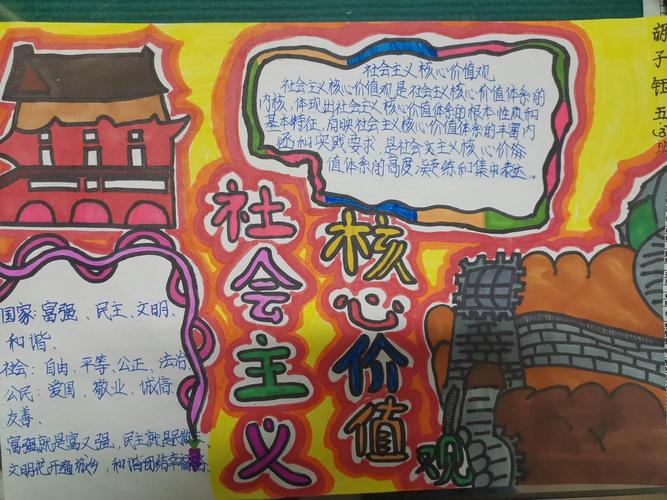 社会主义核心价值观
社会主义核心价值观是社会主义核心价值体系的
内核,体现出社会主义核心价值体系的根本性质和
基本特征,反映社会主义核心价值体系的丰富内
涵和实践要求,是社会主义核心价
值体系的高度凝练和集中表达。
胡子钰五(3)班
社会主义
核心价值观
国家:富强、民主、文明、
和谐
社会:自由、平等、公正、法治
公民:爱国、敬业、诚信、
友善、
富强就是富又强,民主就是民做
文明花开遍城乡,和谐团结幸福